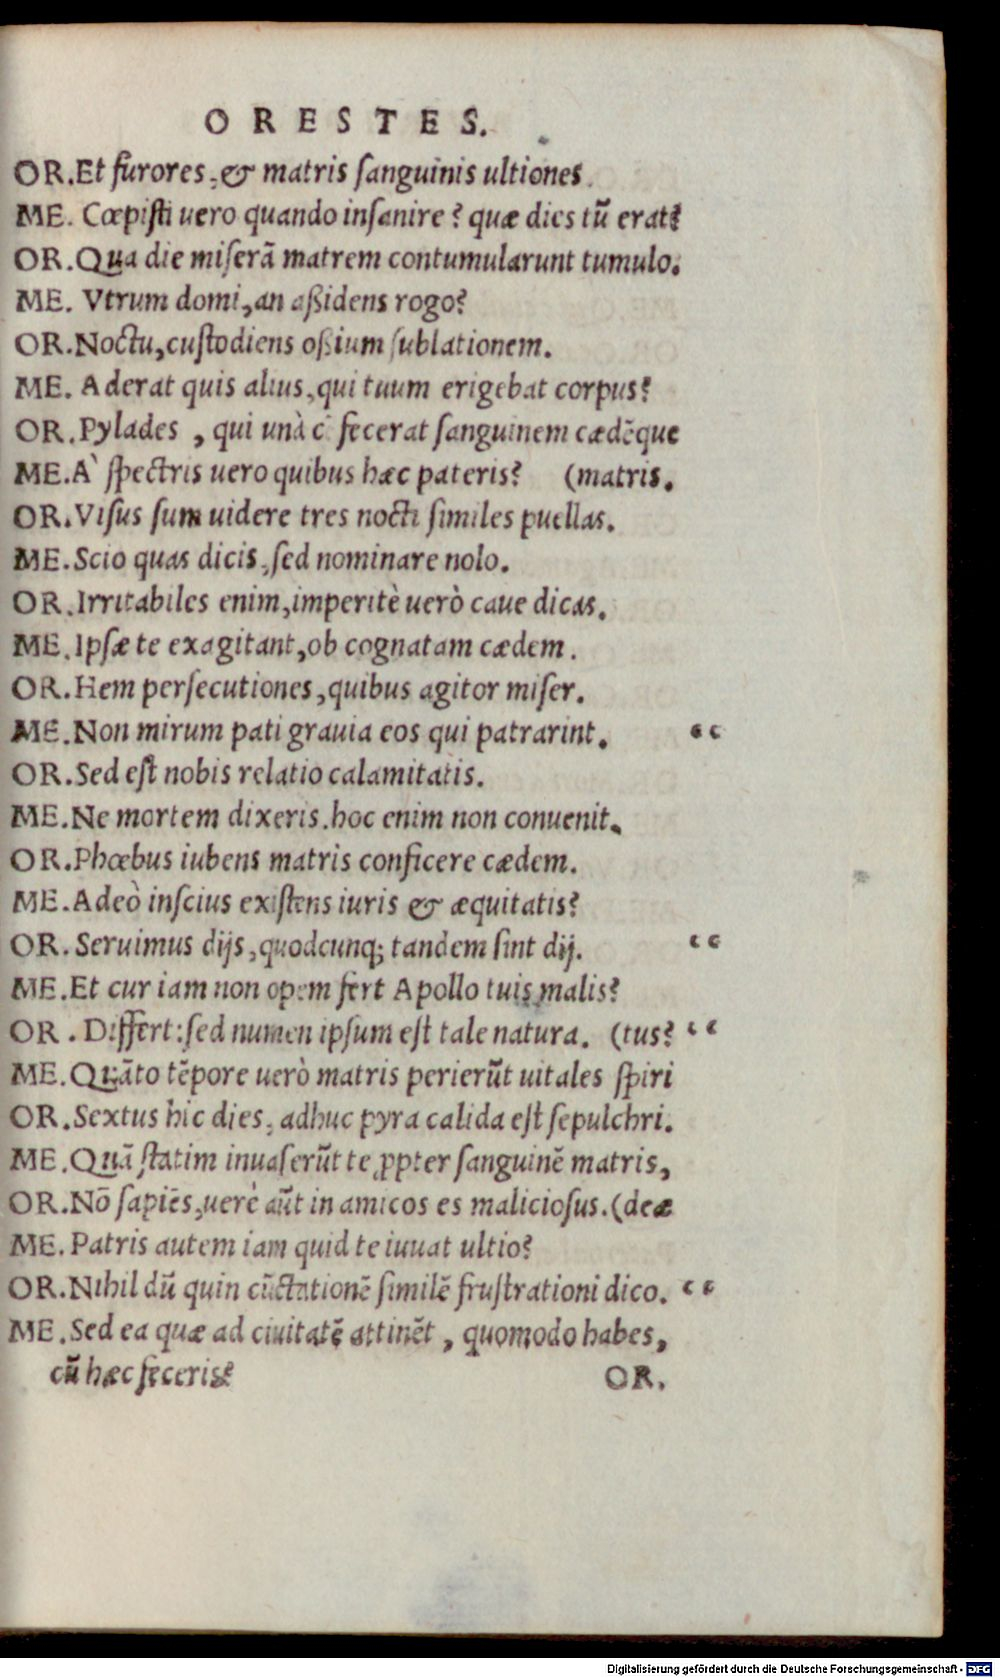 ORESTES.
OR. Et furores, & matris ſanguinis ultiones.
ME. Cœpiſti uero quando inſanire? quæ dies tũ erat?
OR. Qua die miſerã matrem contumularunt tumulo.
ME. Vtrum domi, an aßidens rogo?
OR. Noctu, cuſtodiens oßium ſublationem.
ME. Aderat quis alius, qui tuum erigebat corpus?
OR. Pylades, qui unà c̃ fecerat ſanguinem cædẽque
ME. A` ſpectris uero quibus hæc pateris? (matris.
OR. Viſus ſum uidere tres nocti ſimiles puellas.
ME. Scio quas dicis, ſed nominare nolo.
OR. Irritabiles enim, imperitè uerò caue dicas.
ME. Ipſæ te exagitant, ob cognatam cædem.
OR. Hem perſecutiones, quibus agitor miſer.
ME. Non mirum pati grauia eos qui patrarint. “
OR. Sed eſt nobis relatio calamitatis.
ME. Ne mortem dixeris. hoc enim non conuenit.
OR. Phœbus iubens matris conficere cædem.
ME. Adeò inſcius exiſtens iuris & æquitatis?
OR. Seruimus dijs, quodcunq; tandem ſint dij. “
ME. Et cur iam non opem fert Apollo tuis malis?
OR. Differt: ſed numen ipſum eſt tale natura. (tus? “
ME. Quãto tẽpore uerò matris perierũt uitales ſpiri
OR. Sextus hic dies, adhuc pyra calida eſt ſepulchri.
ME. Quã ſtatim inuaſerũt te ꝓpter ſanguinẽ matris,
OR. Nõ ſapiẽs, uerè aũt in amicos es malicioſus. (deæ
ME. Patris autem iam quid te iuuat ultio?
OR. Nihil dũ quin cũctationẽ ſimilẽ fruſtrationi dico. “
ME. Sed ea quæ ad ciuitatẽ attinẽt, quomodo habes,
cũ hæc feceris?
OR.
Digitalisierung gefördert durch die Deutsche Forschungsgemeinschaft - DFG